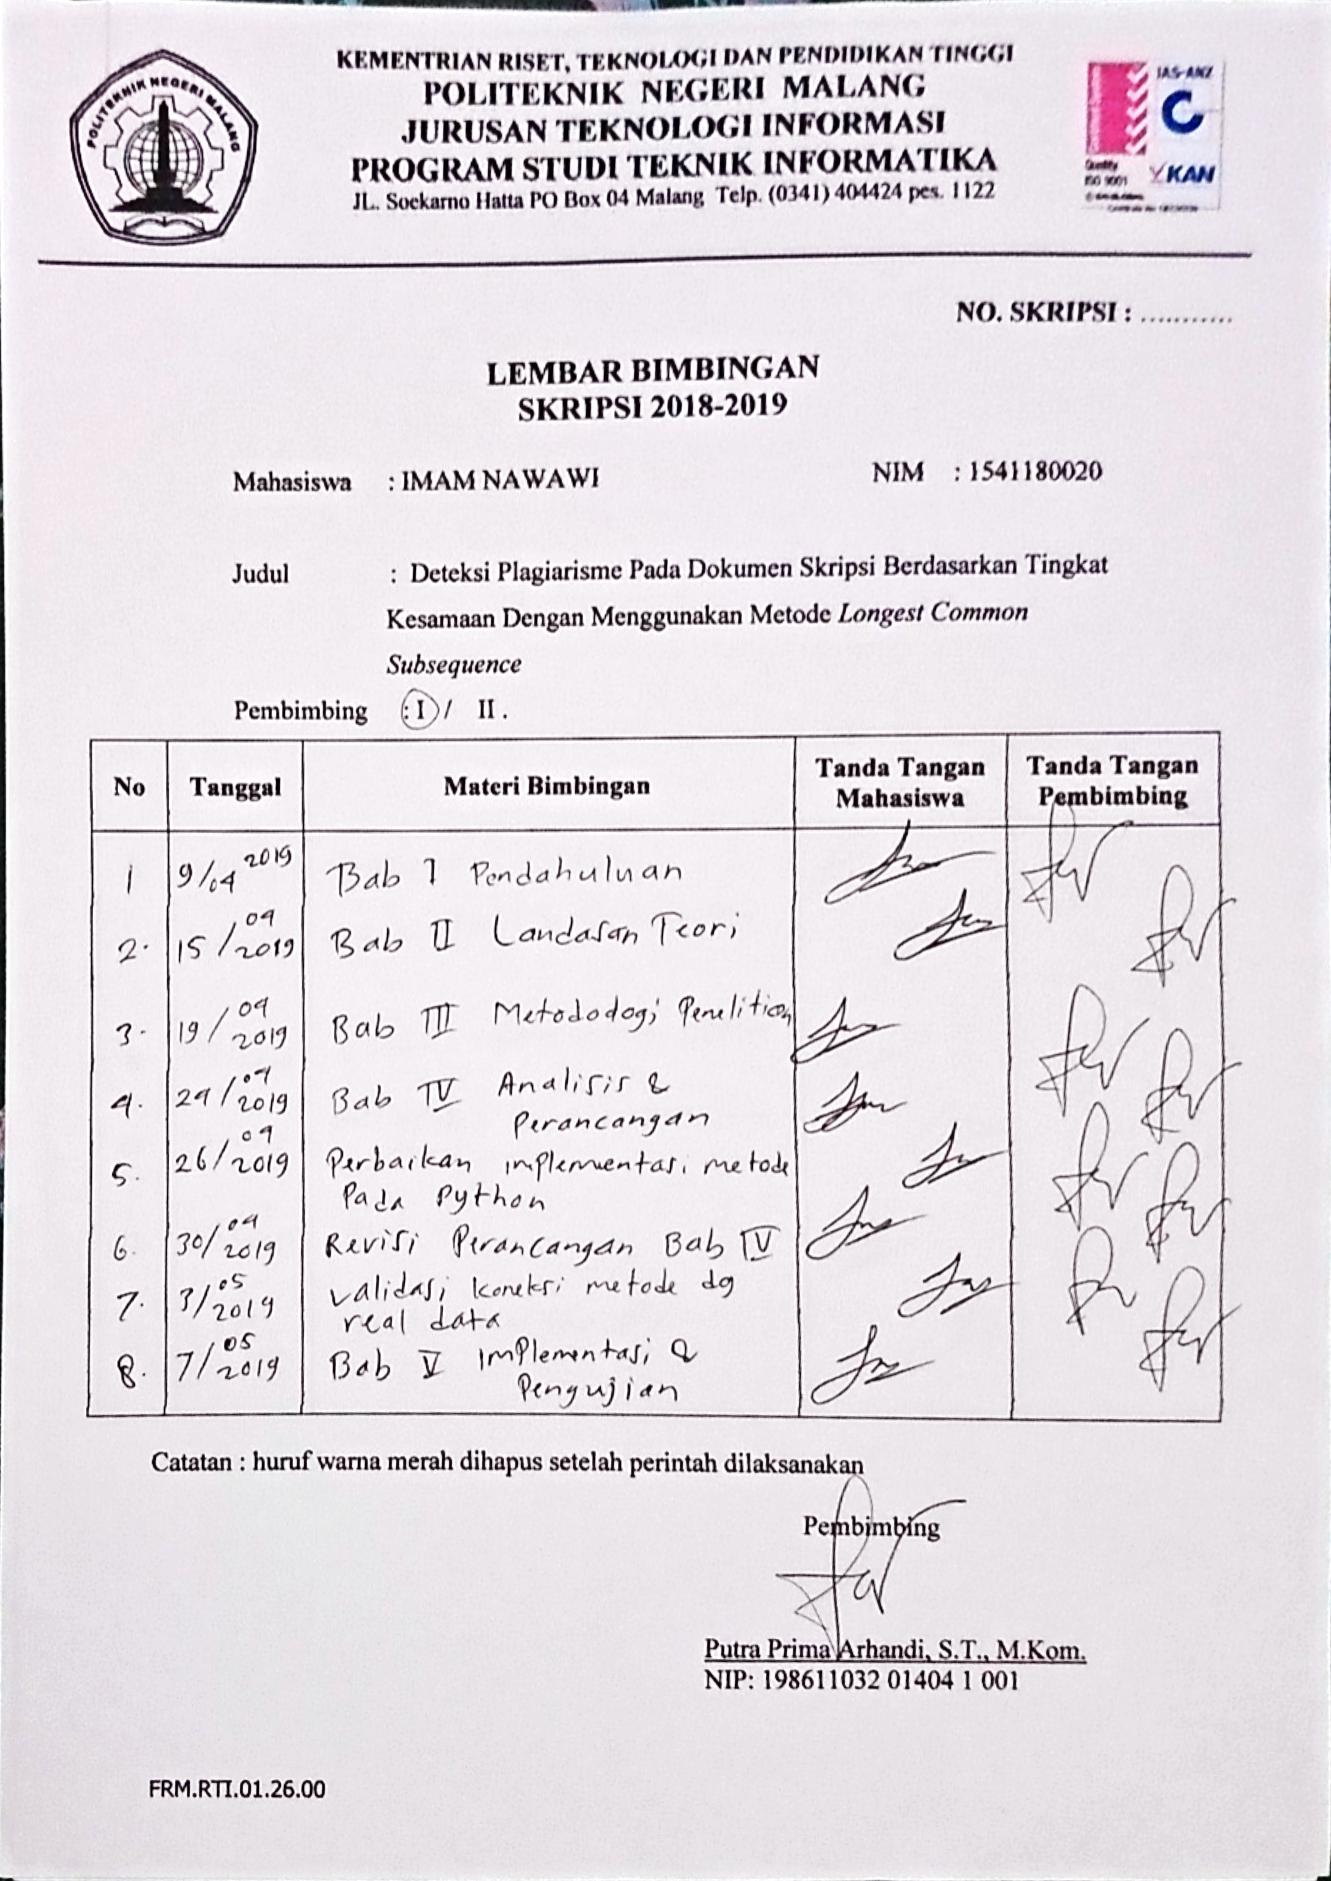 POLITEKNIK NEGERI MALANG
KEMENTRIAN RISET, TEKNOLOGI DAN PENDIDIKAN TINGGI
POLITEKNIK NEGERI MALANG
JURUSAN TEKNOLOGI INFORMASI
PROGRAM STUDI TEKNIK INFORMATIKA
JL. Soekarno Hatta PO Box 04 Malang Telp. (0341) 404424 pes. 1122
JAS-ANZ
C
Quality
ISO 9001
KAN
NO. SKRIPSI : ...........
LEMBAR BIMBINGAN
SKRIPSI 2018-2019
Mahasiswa : IMAM NAWAWI NIM : 1541180020
Judul : Deteksi Plagiarisme Pada Dokumen Skripsi Berdasarkan Tingkat
Kesamaan Dengan Menggunakan Metode Longest Common
Subsequence
Pembimbing : I / II .
No Tanggal Materi Bimbingan Tanda Tangan Mahasiswa Tanda Tangan Pembimbing
1 9/04 2019 Bab I Pendahuluan
2. 15/04 2019 Bab II Landasan Teori
3. 19/04 2019 Bab III Metododogi Penelitian
4. 24/04 2019 Bab IV Analisis &
Perancangan
5. 26/04 2019 Perbaikan implementasi metode
Pada Python
6. 30/04 2019 Revisi Perancangan Bab IV
7. 3/05 2019 Validasi koneksi metode dg
real data
8. 7/05 2019 Bab V Implementasi &
Pengujian
Catatan : huruf warna merah dihapus setelah perintah dilaksanakan
Pembimbing
Putra Prima Arhandi, S.T., M.Kom.
NIP: 198611032 01404 1 001
FRM.RTI.01.26.00